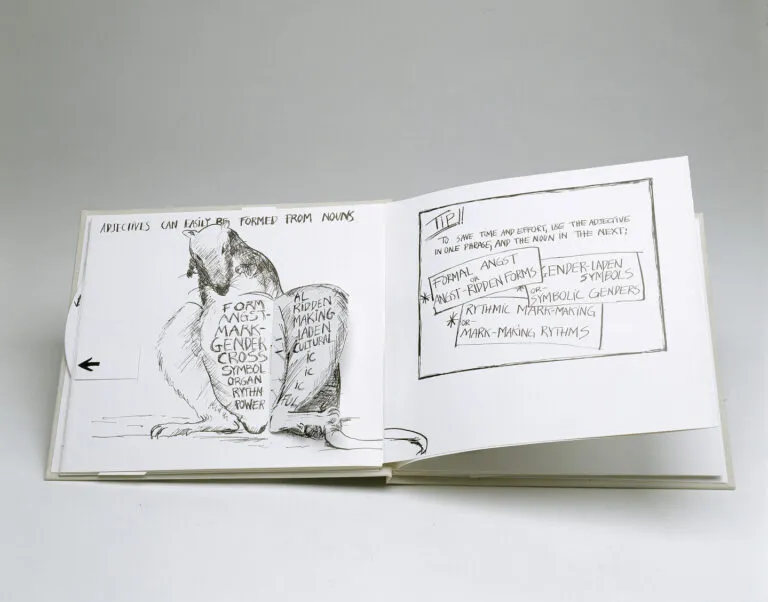 ADJECTIVES CAN EASILY BE FORMED FROM NOUNS
FORM
ANGST-
MARK-
GENDER-
CROSS
SYMBOL
ORGAN
RYTHM
POWER
AL
RIDDEN
MAKING
LADEN
CULTURAL
IC
IC
IC
FUL
TIP!!
TO SAVE TIME AND EFFORT, USE THE ADJECTIVE
IN ONE PHRASE, AND THE NOUN IN THE NEXT:
FORMAL ANGST
OR
* ANGST-RIDDEN FORMS
GENDER-LADEN
SYMBOLS
* -OR-
SYMBOLIC GENDERS
RYTHMIC MARK-MAKING
* -OR-
MARK-MAKING RYTHMS